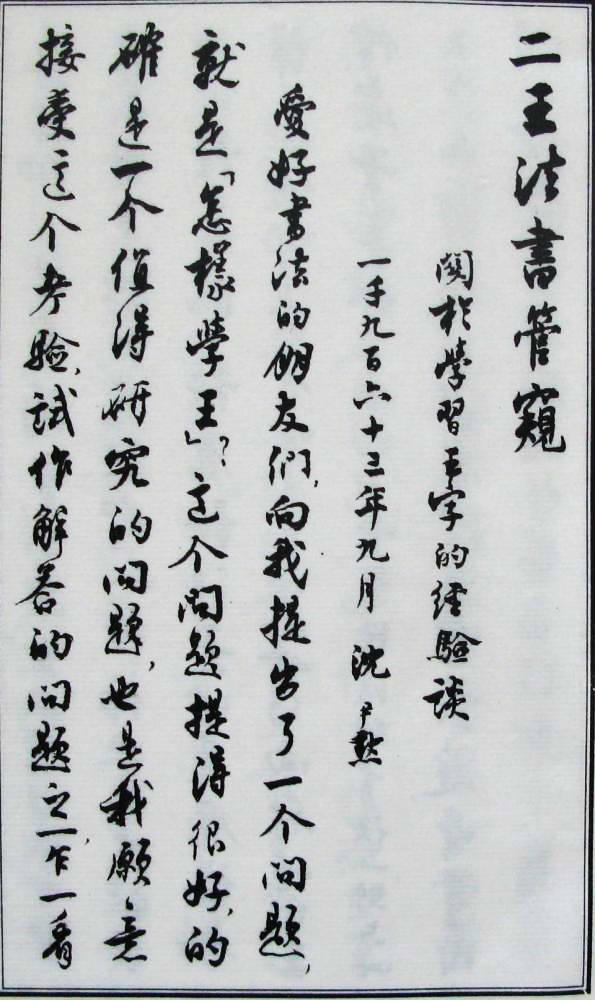 二王法書管窺
關於學習王字的經驗談
一千九百六十三年九月 沈尹默
愛好書法的朋友們，向我提出了一个問題，
就是「怎樣學王」？這个問題提得很好，的
確是一个值得研究的問題，也是我願意
接受這个考驗，試作解答的問題之一，乍一看